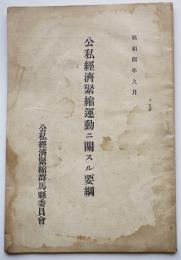 昭和四年九月
公私經濟緊縮運動ニ關スル要綱
公私經濟緊縮群馬縣委員會